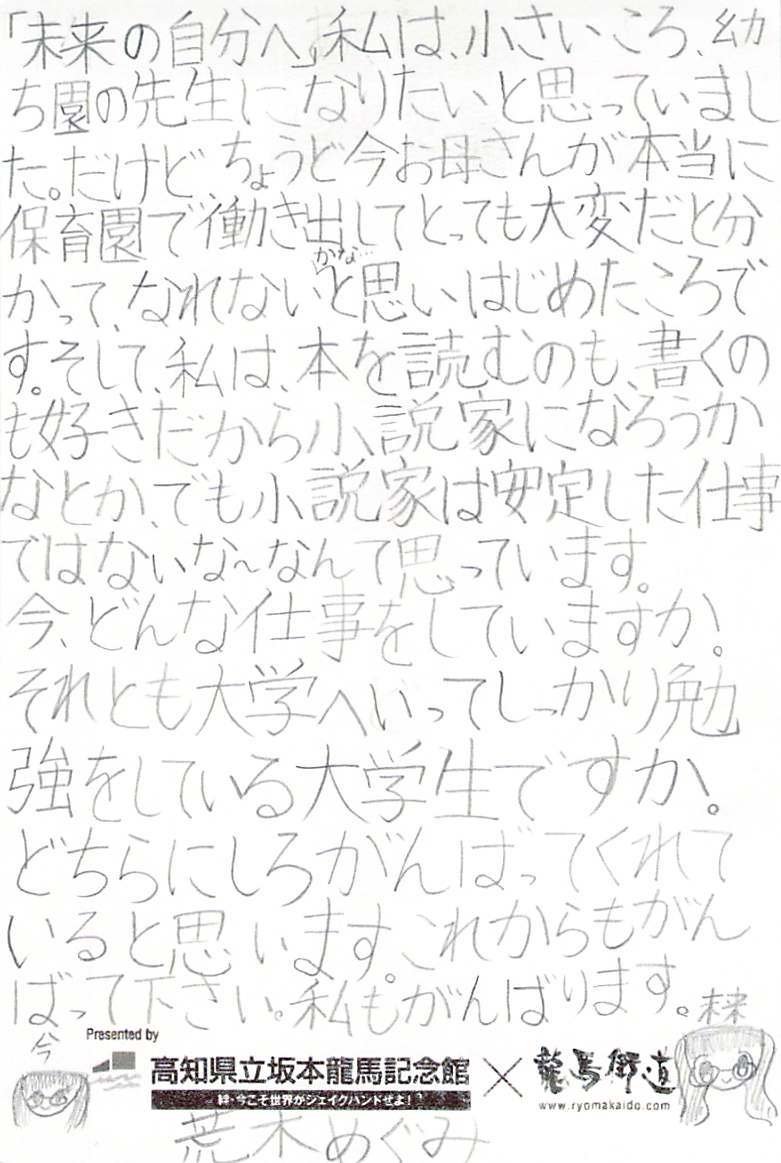 「未来の自分へ」私は、小さいころ、幼
ち園の先生になりたいと思っていまし
た。だけど、ちょうど今お母さんが本当に
保育園で働き出してとっても大変だと分
かって、なれないかな…と思いはじめたころで
す。そして、私は、本を読むのも、書くの
も好きだから小説家になろうか
なとか、でも小説家は安定した仕事
ではないな〜なんて思っています。
今、どんな仕事をしていますか。
それとも大学へいってしっかり勉
強をしている大学生ですか。
どちらにしろがんばってくれて
いると思います。これからもがん
ばって下さい。私もがんばります。
未来
Presented by
今
高知県立坂本龍馬記念館×龍馬街道
絆・今こそ世界がシェイクハンドぜよ!
www.ryomakaido.com
荒木めぐみ